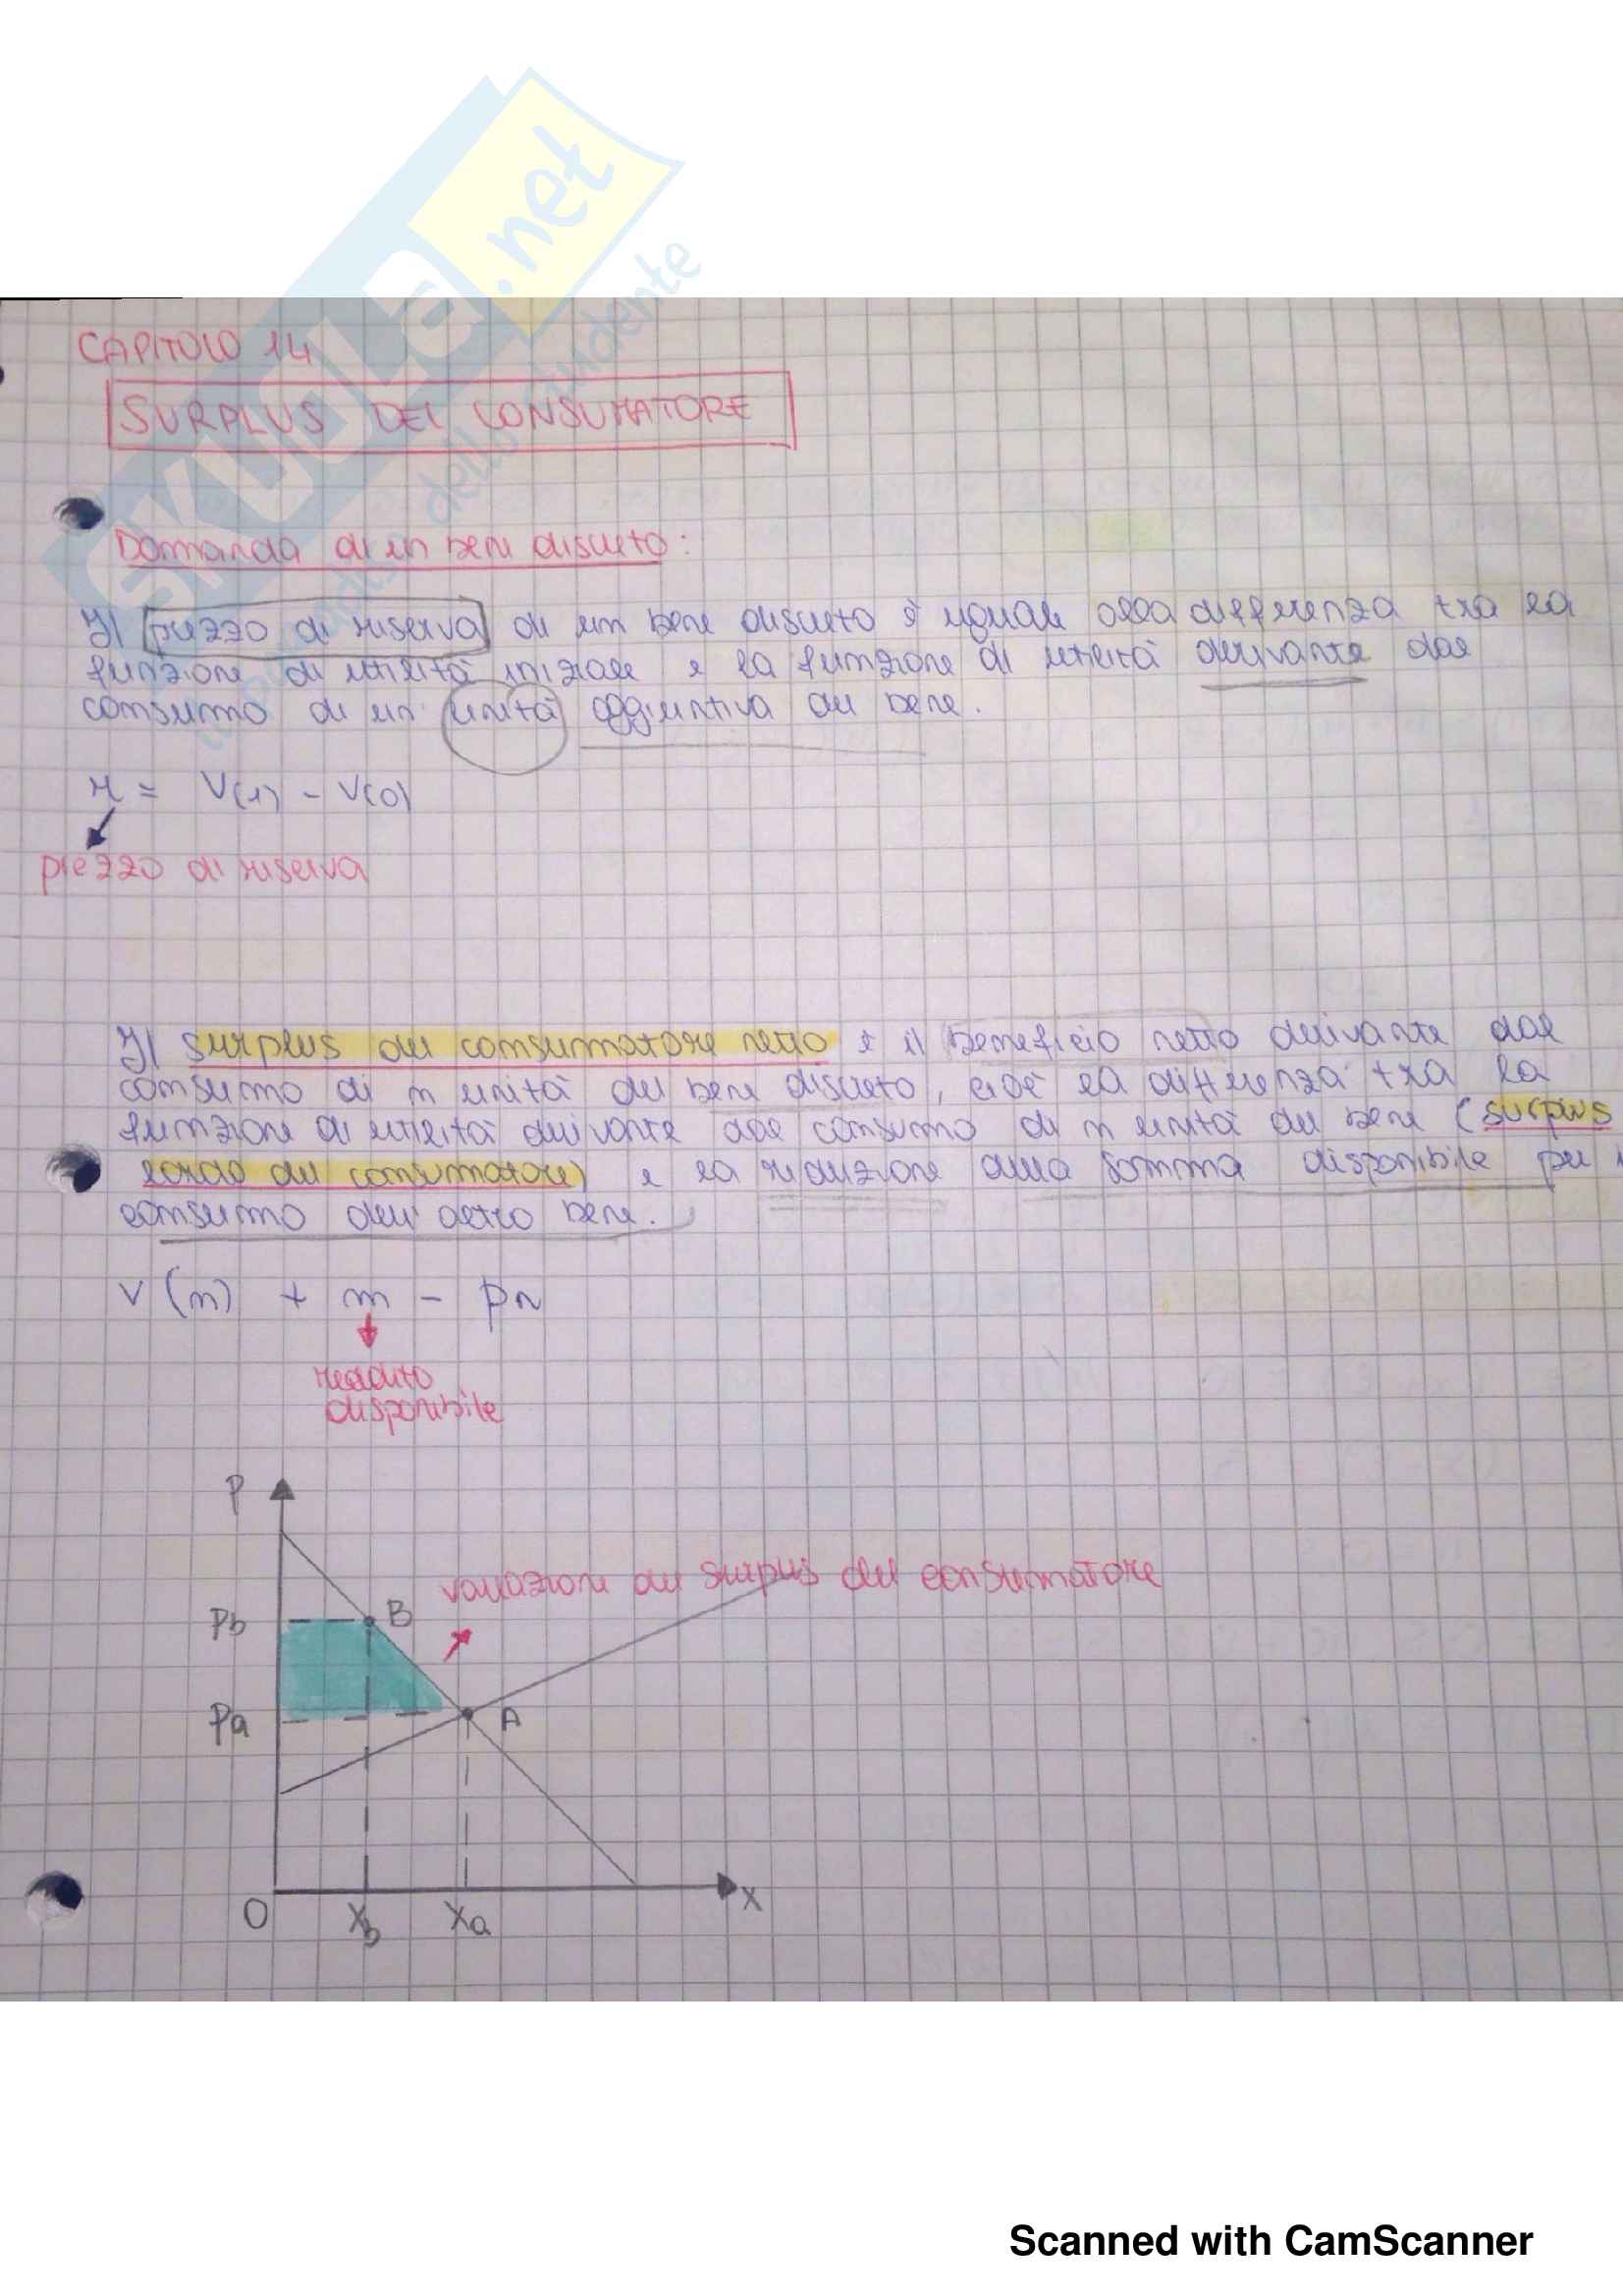 SKUOLA.net
CAPITOLO 14
SURPLUS DEL CONSUMATORE
Domanda di un bene discreto:
Il prezzo di riserva di un bene discreto è uguale alla differenza tra la
funzione di utilità iniziale e la funzione di utilità derivante dal
consumo di un' unità aggiuntiva del bene.
r = V(1) - V(0)
prezzo di riserva
Il surplus del consumatore netto è il beneficio netto derivante dal
consumo di n unità del bene discreto, cioè la differenza tra la
funzione di utilità derivante dal consumo di n unità del bene (surplus
lordo del consumatore) e la riduzione della somma disponibile per i
consumo dell' altro bene.
V (n) + m - pn
reddito
disponibile
P
variazione del surplus del consumatore
Pb
B
Pa
A
O
Xb
Xa
X
Scanned with CamScanner